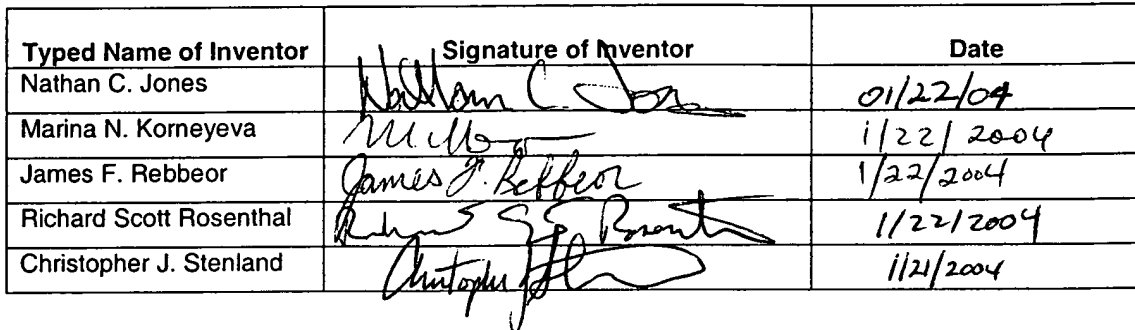 Typed Name of Inventor Signature of Inventor Date
Nathan C. Jones Nathan C. Jones 01/22/04
Marina N. Korneyeva 1/22/2004
James F. Rebbeor James F. Rebbeor 1/22/2004
Richard Scott Rosenthal 1/22/2004
Christopher J. Stenland Christopher 1/21/2004